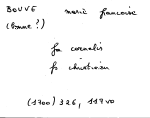 BOUVE marie francoise
(bonne?)
fa cornelis
fs christiaen
(1700) 326, 117 vo